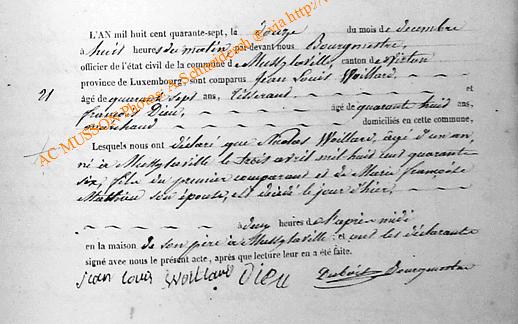 L'AN mil huit cent quarante-sept, le douze du mois de decembre
à huit heures du matin par-devant nous Bourgmestre,
officier de l'état civil de la commune de Mussylaville, canton de Virton
province de Luxembourg, sont comparus Jean Louis Woillard,
21
âgé de quarante sept ans, Tisserand et
françois Dieu, âgé de quarante huit ans,
marchand domiciliés en cette commune,
Lesquels nous ont déclaré que Nicolas Woillard, âgé d'un an,
né à Mussylaville le trois avril mil huit cent quarante
six, fils du premier comparant et de Marie françoise
Matthieu son épouse, est décédé le jour d'hier,
à deux heures de l'après midi
en la maison de son père à Mussylaville; et ont les déclarants
signé avec nous le présent acte, après que lecture leur en a été faite.
jean Louis Woillard Dieu Bourgmestre
AC-MUSSON Photos: A. Schneiderch @ via http://